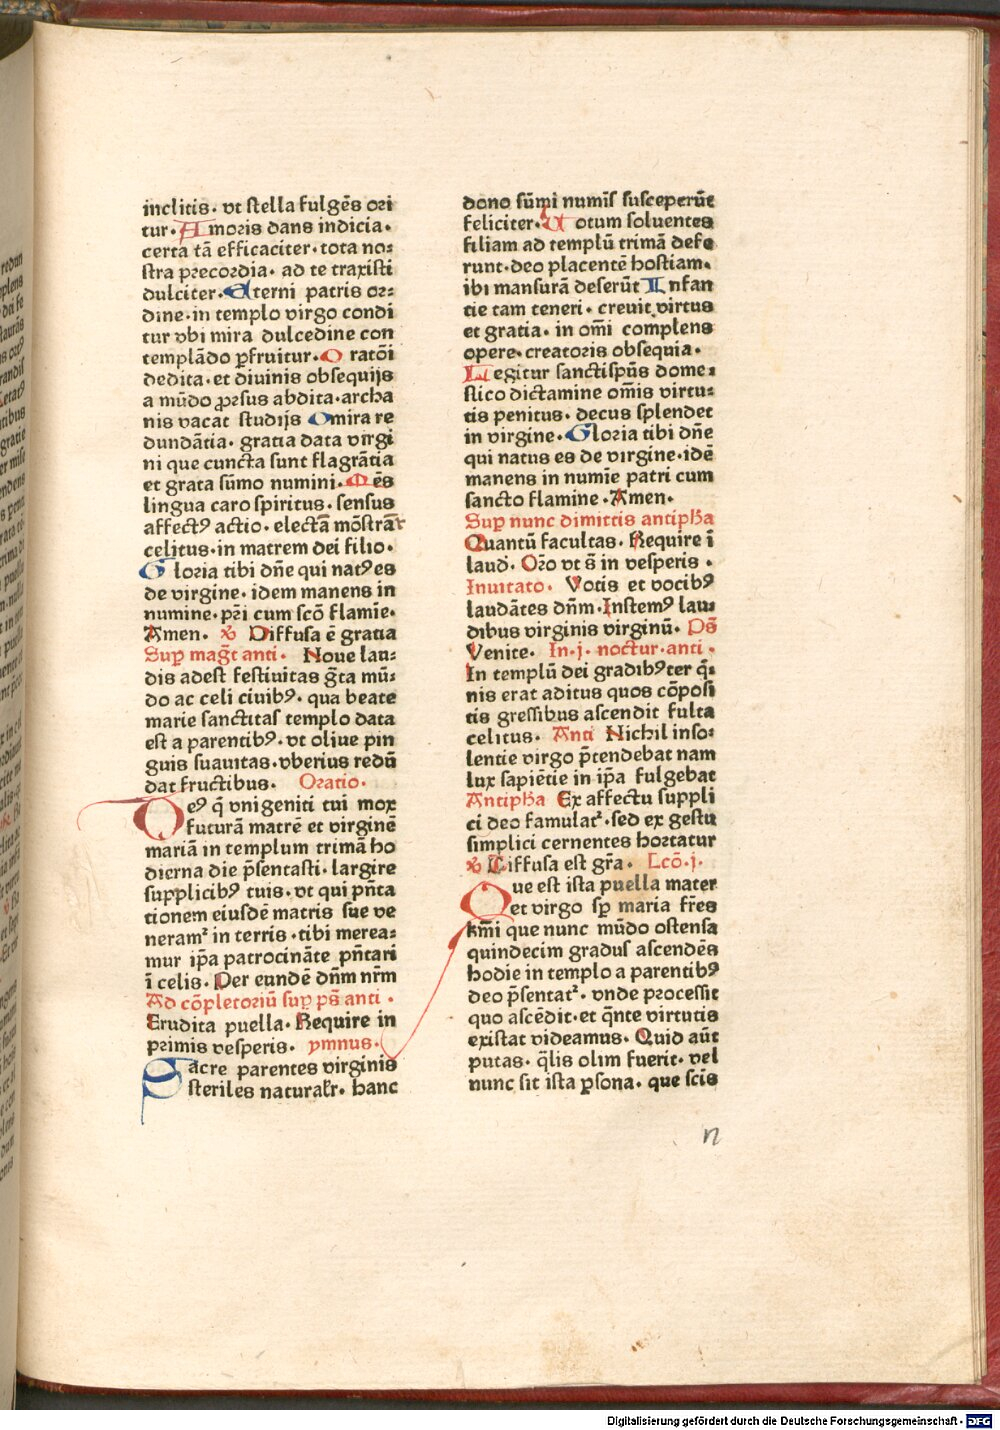 inclitis. vt stella fulgēs ori
tur. Amoris dans indicia.
certa tā efficaciter. tota no:
stra precordia. ad te traxisti
dulciter. Eterni patris or:
dine. in templo virgo condi
tur vbi mira dulcedine con
templādo ꝑfruitur. O ratōi
dedita. et diuinis obsequijs
a mūdo ꝓrsus abdita. archa
nis vacat studijs O mira re
dundātia. gratia data virgi
ni que cuncta sunt flagrātia
et grata sūmo numini. Mēs
lingua caro spiritus. sensus
affectꝰ actio. electā mōstrāt
celitus. in matrem dei filio.
Gloria tibi dn̄e qui natꝰ es
de virgine. idem manens in
numine. pr̄i cum scō flamīe.
Amen. ℣ Diffusa ē gratia
Suꝑ maḡt anti. Noue lau:
dis adest festiuitas ḡta mū:
do ac celi ciuibꝰ. qua beate
marie sanctitas templo data
est a parentibꝰ. vt oliue pin
guis suauitas. vberius redū
dat fructibus. Oratio.
Deꝰ q̄ vnigeniti tui mox
futurā matrē et virginē
mariā in templum trimā ho
dierna die p̄sentasti. largire
supplicibꝰ tuis. vt qui pn̄ta
tionem eiusdē matris sue ve
neramᷣ in terris. tibi merea:
mur ip̄a patrocināte pn̄tari
ī celis. Per eundē dn̄m nr̄m
Ad cōpletoriū suꝑ ps̄ anti.
Erudita puella. Require in
primis vesperis. ymnus.
Sacre parentes virginis
steriles naturałr. hanc
dono sūmi numīs susceperūt
feliciter. Uotum soluentes
filiam ad templū trimā defe
runt. deo placentē hostiam.
ibi mansurā deserūt Infan
tie tam teneri. creuit virtus
et gratia. in om̄i complens
opere. creatoris obsequia.
Legitur sanctispūs dome:
stico dictamine om̄is virtu:
tis penitus. decus splendet
in virgine. Gloria tibi dn̄e
qui natus es de virgine. idē
manens in numīe patri cum
sancto flamine. Amen.
Suꝑ nunc dimittis antipħa
Quantū facultas. Require ī
laud. Or̄o vt s̄ in vesperis.
Inuitato. Votis et vocibꝰ
laudātes dn̄m. Instemꝰ lau:
dibus virginis virginū. Ps̄
Venite. In. j. noctur. anti.
In templū dei gradibꝰ ter q̄:
nis erat aditus quos cōposi
tis gressibus ascendit fulta
celitus. Anti Nichil inso:
lentie virgo p̄tendebat nam
lux sapiētie in ip̄a fulgebat
Antipħa Ex affectu suppli
ci deo famulatᷣ. sed ex gestu
simplici cernentes hortatur
℣ Diffusa est gr̄a. Lcō. j.
Que est ista puella mater
et virgo sꝑ maria fr̄es
km̄i que nunc mūdo ostensa
quindecim gradus ascendēs
hodie in templo a parentibꝰ
deo p̄sentatᷣ. vnde processit
quo ascēdit. et q̄nte virtutis
existat videamus. Quid aūt
putas. q̄lis olim fuerit. vel
nunc sit ista ꝑsona. que scis
n
Digitalisierung gefördert durch die Deutsche Forschungsgemeinschaft - DFG